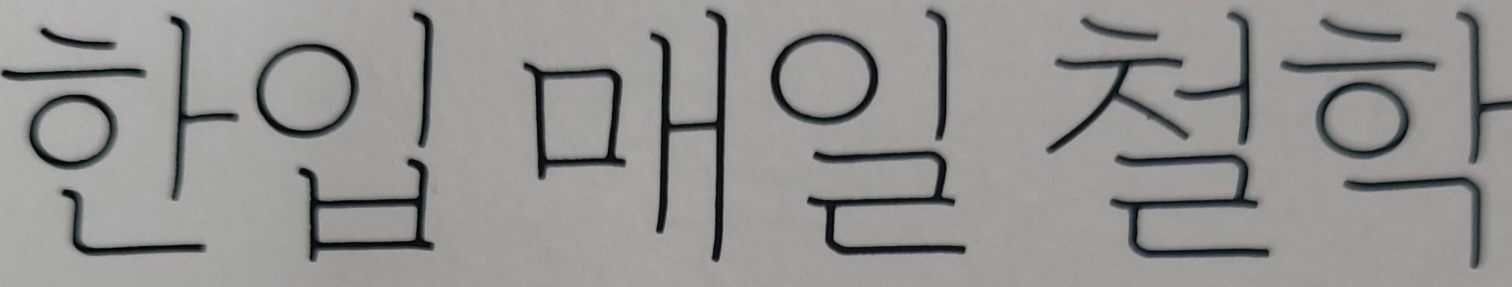 한입 매일 철학